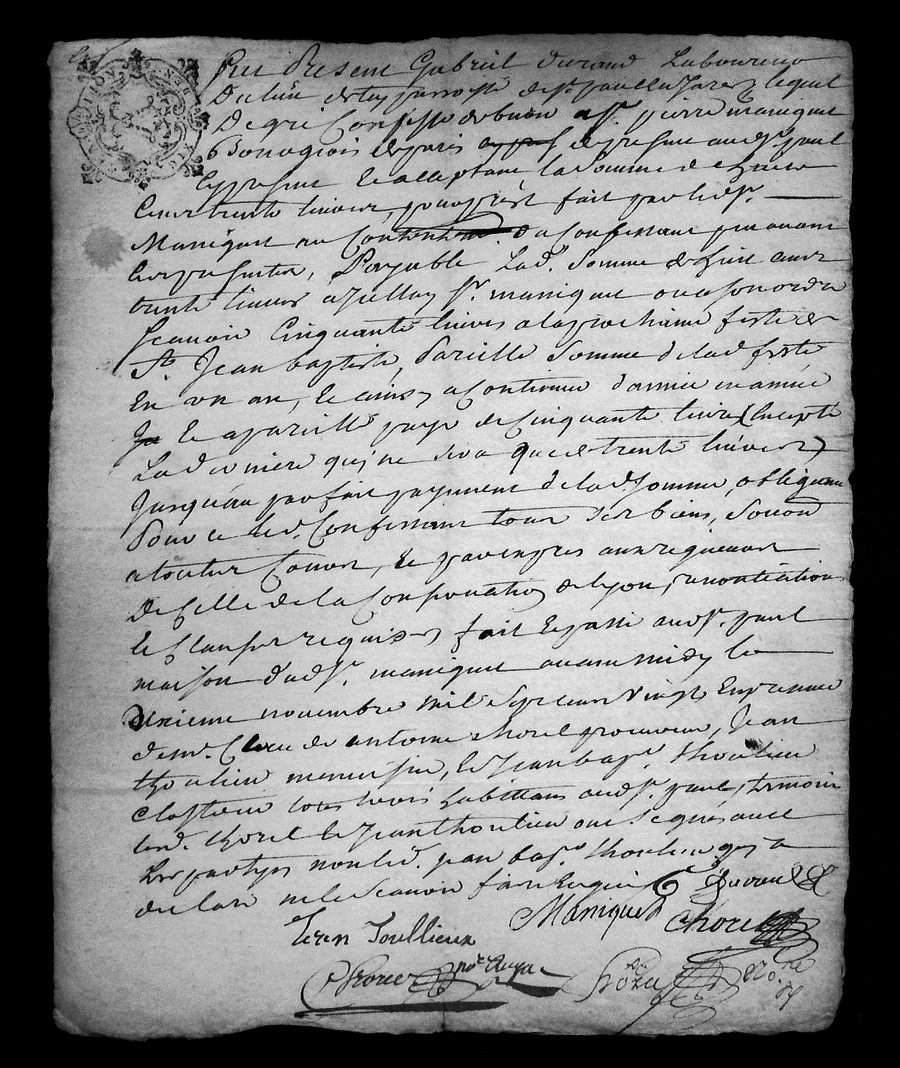 Fut Present Gabriel Durand Laboureur
Du lieu de parroisse de st. paul en Jarez, lequel
De gré Confesse debvoir a sr. pierre maniquet
Bourgeois de paris present au dt. st. paul
Cy present & acceptant la Somme de huict
Cent trente livres, pour prest fait par led. sr.
Maniquet au Contentement du Confessant qui avant
Payable Lad. Somme de huit cent
trente livres a Icelluy sr. maniquet ou a son ordre
Scavoir Cinquante livres a la prochaine feste de
St. Jean baptiste, Pareille Somme de lad. feste
En un an, & ainsy a Continuer d'année en année
Ja & a pareille paye de Cinquante livres (Excepté
La derniere qui ne sera que de trente livres)
Jusqu'au parfait payement de lad. Somme, obligeant
Pour ce led. Confessant tous ses biens, Soumis
a toutes Cours, & par exprès aux rigueurs
De Celle de la Conservation de lyon, renonciations
& Clauses requises, fait & passé aud. st. paul
maison dud. sr. maniquet avant midy le
dixieme novembre mil Sept cent Vingt En presence
de me. Claude antoine Chorel procureur, Jean
thoulieu menuisier, & Jean bapt. thoulieu
Clastrier tous trois habittans aud. st. paul, temoins
led. Chorel & Jean thoulieu ont signé avec
Les partyes non led. Jean bapt. thoulieu qui a
declaré ne le Scavoir faire Enquis G Durand
Maniquet Chorel
Jean Toullieux
Chorel